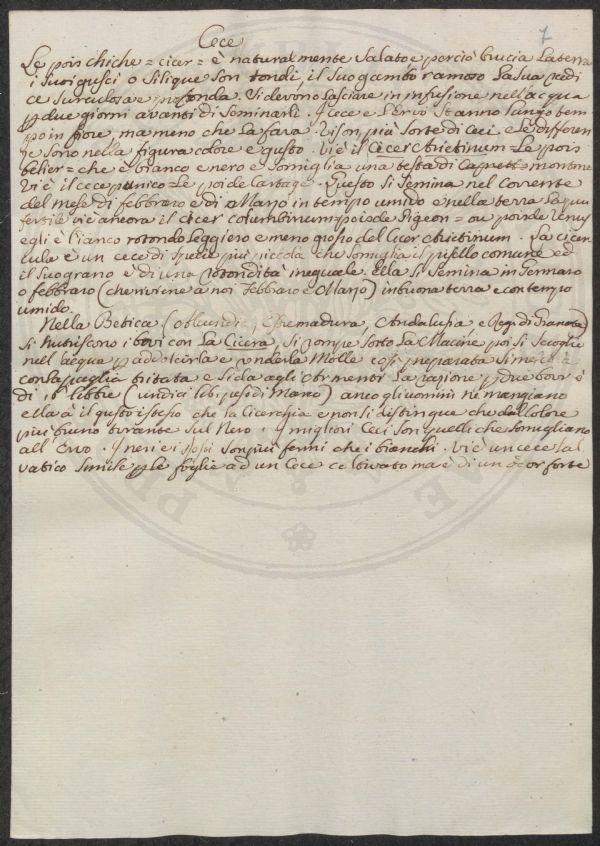 7
Cece
Le pois chiche = cicer = è naturalmente Salato e perciò brucia La terra
i Suoi gusci o Silique Son tondi, il Suo gambo ramoso La Sua radi
ce Surculosa e profonda. Si devono Lasciare in infusione nell'acqua
p due giorni avanti di Seminarli. I Cece e l'Ervo Stanno Lungo tem
po in fiore, ma meno che La fava. Vi son più Sorte di Ceci e Le differen
ze Sono nella figura colore e gusto. Vi è il Cicer Arietinum = Le pois
belier = che è bianco e nero e Somiglia una testa di montone
Vi è il cece punico = Le pois de Cartage. Questo Si Semina nel Corrente
del mese di febbraro e di Marzo in tempo umido e nella terra La più
fertile vi è ancora il Cicer Columbinum = pois de Pigeon = ou pois de Venus
egli è bianco rotondo Leggiero e meno grosso del Cicer Arietinum. La cicer
cula è un cece di Spezie più piccola che Somiglia il pisello comune ed
il Suo grano è di una rotondità ineguale. Ella Si Semina in Jennaro
o febbraro (che riviene a noi Febbraro e Marzo) in buona terra e con tempo
umido.
Nella Betica ( Estremadura, Andalusia e Regno di Granata)
Si Nutriscono i bovi con La Cicera, Si rompe Sotto La Macine poi Si
nell'acqua p addolcirla e renderla Molle così preparata Si
con La paglia tritata e Si da agli Armenti La ragione p due bovi è
di 16 libbre (undici lib. peso di Mano) anco gli uomini ne mangiano
ella à il gusto istesso che La Cicerchia e non Si distingue che dal Colore
più bruno tirante Sul Nero. I migliori Ceci Son quelli che Somigliano
all'Ervo. I neri e i rossi Son più fermi che i bianchi. Vi è un cece Sal
vatico Simile p le foglie ad un Cece coltivato ma è di un odor forte